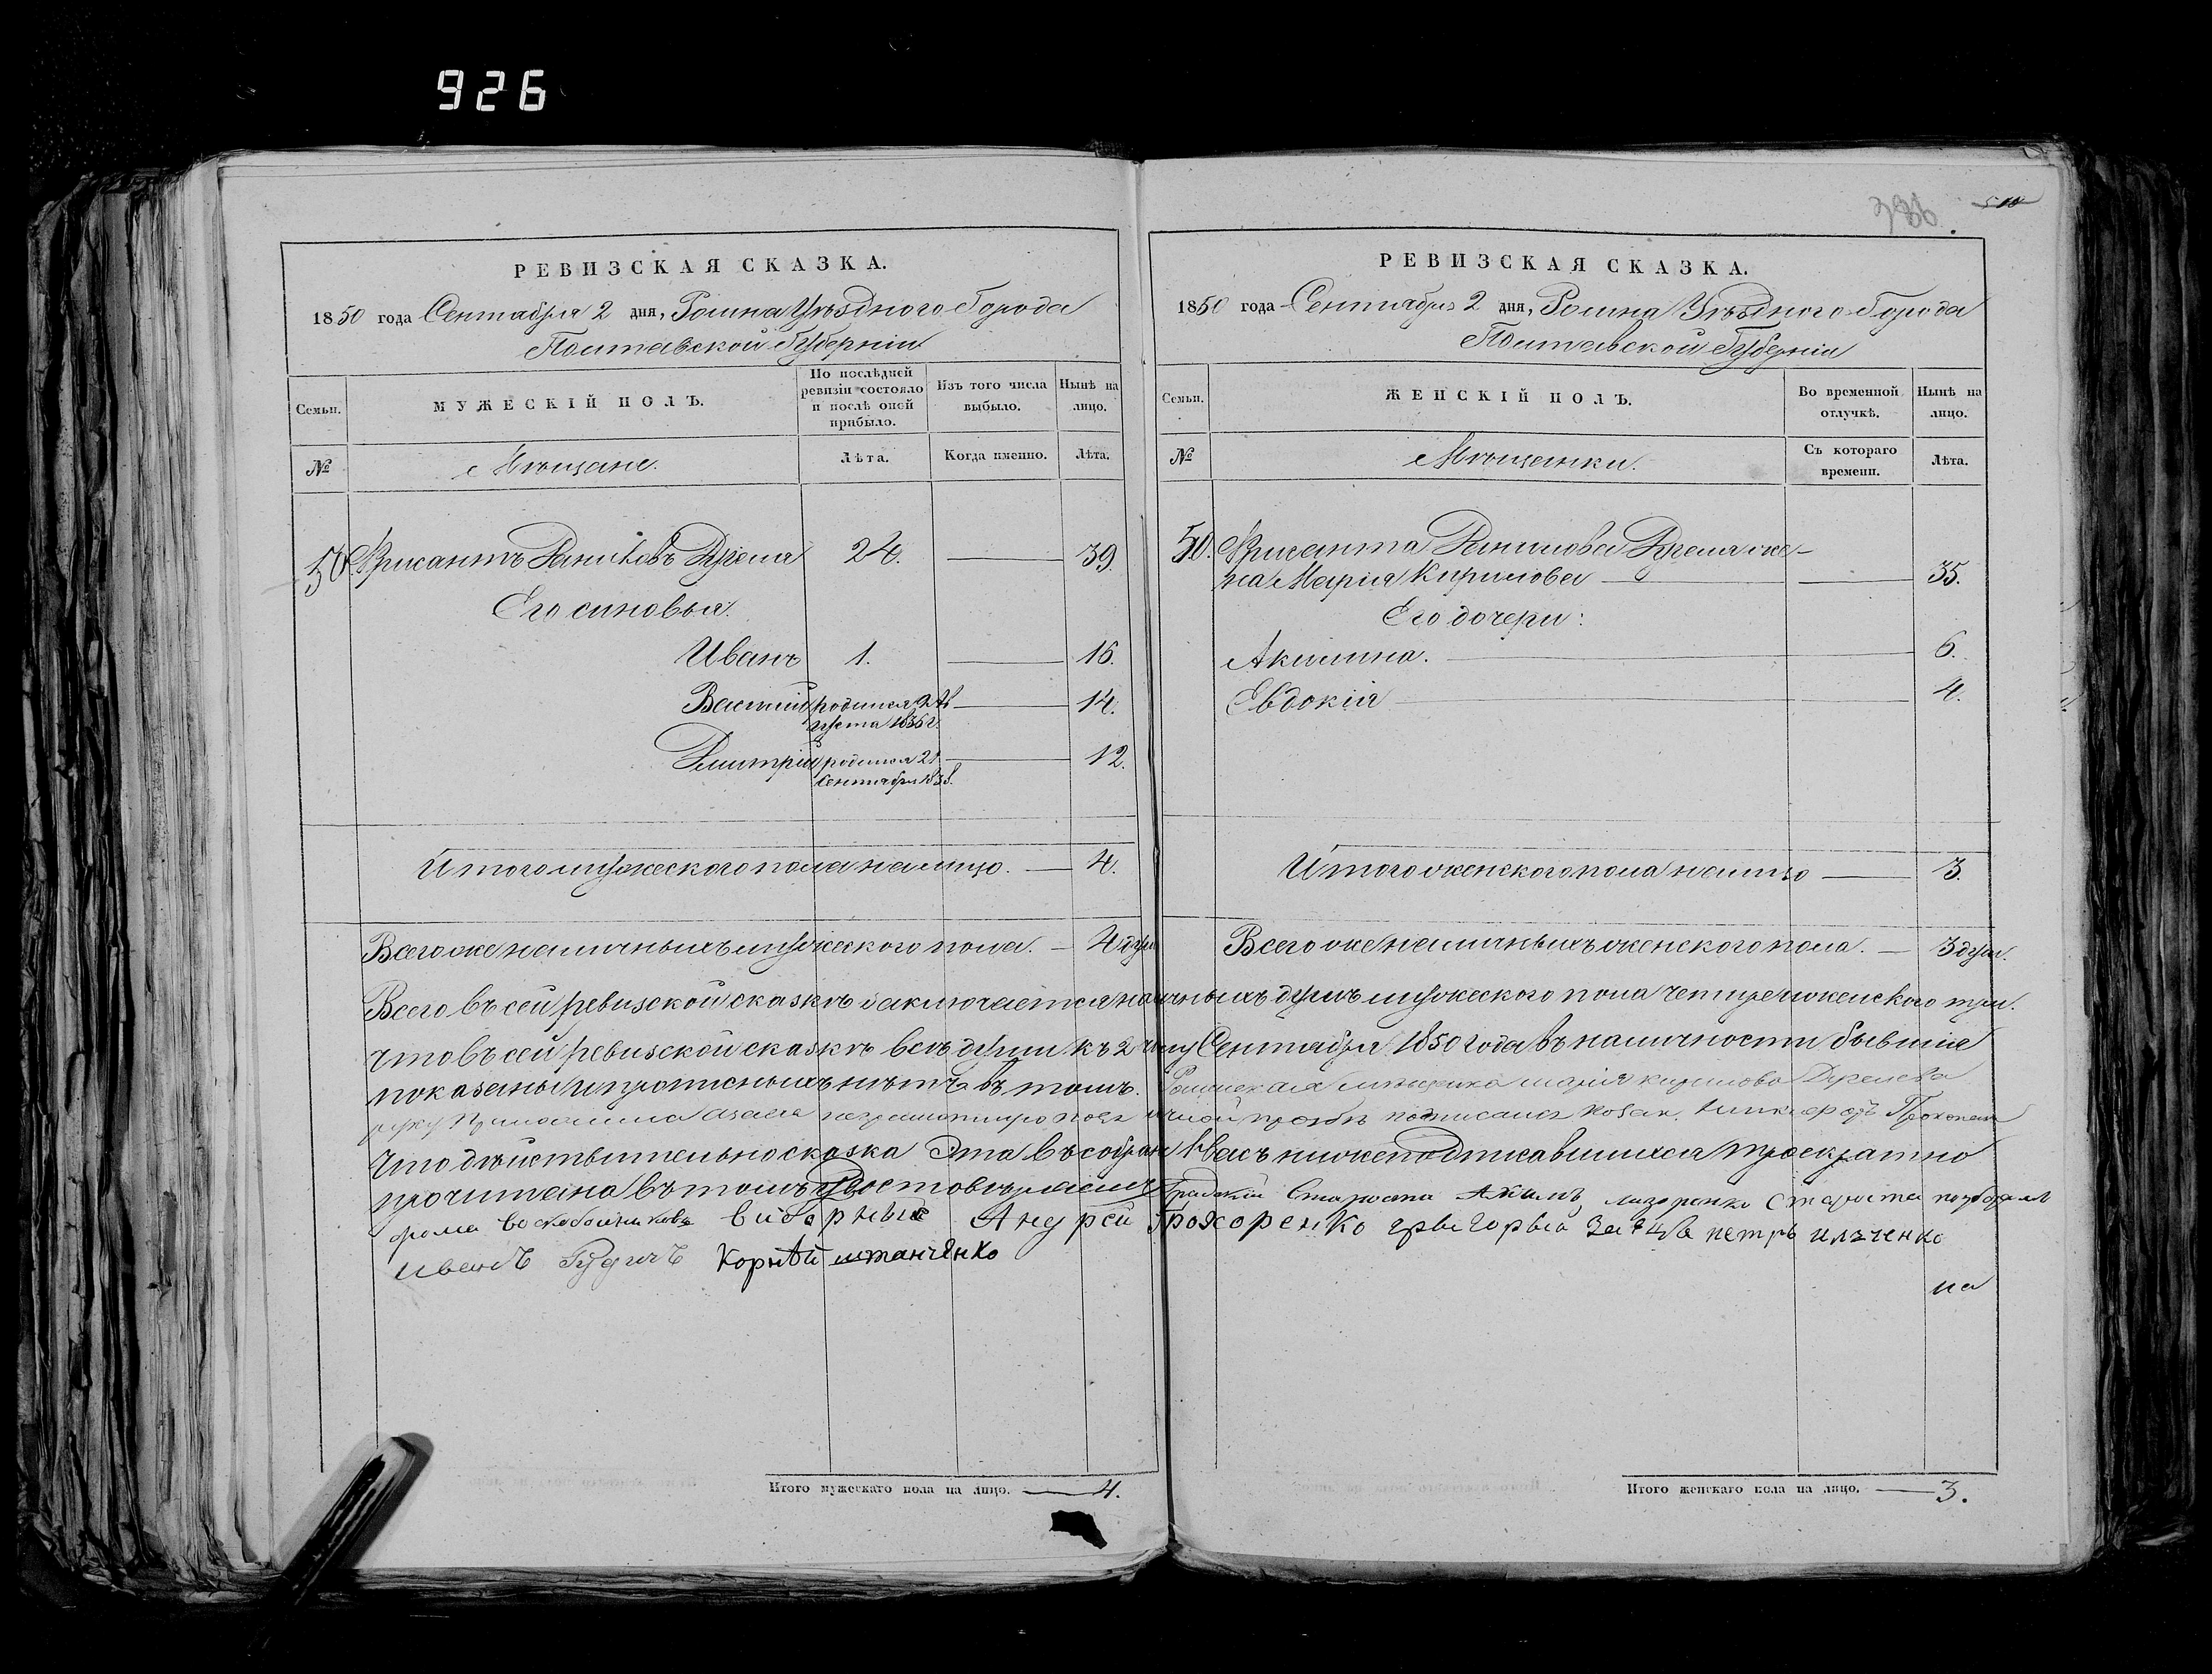 926
РЕВИЗСКАЯ СКАЗКА.
1850 года Сентября 2 дня, Ромна Уѣзднаго Города
Полтавской Губерніи
Семьи.
МУЖЕСКІЙ ПОЛЪ.
По послѣдней ревизіи состояло и послѣ оной прибыло.
Изъ того числа выбыло.
Нынѣ на лицо.
№
Мѣщане.
Лѣта.
Когда именно.
Лѣта.
50. Хрисантъ Даниловъ 24. 39.
Его синовья.
Иванъ 1. 16.
Василій родился августа 1836 г. 14.
Дмитрій родился 21 Сентября 1838. 12.
Итого мужеского пола налицо. 4.
Всего же наличныхъ мужеского пола. 4 душ
РЕВИЗСКАЯ СКАЗКА.
1850 года Сентября 2 дня, Ромна Уѣздного Города
Полтавской Губерніи
Семьи.
ЖЕНСКІЙ ПОЛЪ.
Во временной отлучкѣ.
Нынѣ на лицо.
№
Мѣщанки.
Съ котораго времени.
Лѣта.
50. Хрисанта Данилова же-
на Марія Кирилова 35.
Его дочери:
Акилина. 6.
Евдокія 4.
Итого женского пола налицо 3.
Всего же наличныхъ женского пола. 3 душ.
Всего въ сей ревизской сказкѣ заключается наличныхъ душъ мужеского пола четире и женского три.
что въ сей ревизской сказкѣ всѣ души къ 2 числу Сентября 1850 года въ наличности бывшіе
показаны и прописныхъ нѣтъ въ томъ. Роменская мѣщанка Марія Кирилова
руку
Что дѣйствительно сказка эта въ собраніи насъ нижеподписавшихся троекратно
прочитана въ томъ удостовѣряемъ Градскій Староста Староста
виборные Андрей Прохоренко григорьй петръ илченко
иванъ Корнѣй
Итого мужескаго пола на лицо. 4.
Итого женскаго пола на лицо. 3.